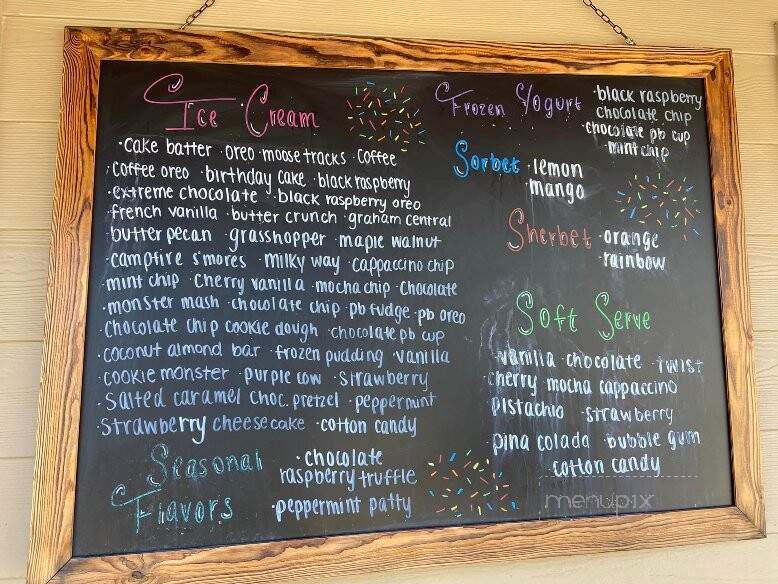 Ice Cream
·cake batter ·oreo ·moose tracks ·coffee
·coffee oreo ·birthday cake ·black raspberry
·extreme chocolate ·black raspberry oreo
·french vanilla ·butter crunch ·graham central
·butter pecan ·grasshopper ·maple walnut
·campfire s'mores ·milky way ·cappaccino chip
·mint chip ·cherry vanilla ·mocha chip ·chocolate
·monster mash ·chocolate chip ·pb fudge ·pb oreo
·chocolate chip cookie dough ·chocolate pb cup
·coconut almond bar ·frozen pudding ·vanilla
·cookie monster ·purple cow ·strawberry
·salted caramel choc. pretzel ·peppermint
·strawberry cheesecake ·cotton candy
Seasonal
Flavors
·chocolate
raspberry truffle
·peppermint patty
Frozen Yogurt
·black raspberry
chocolate chip
·chocolate pb cup
·mint chip
Sorbet
·lemon
·mango
Sherbet
·orange
·rainbow
Soft Serve
·vanilla ·chocolate ·twist
·cherry mocha cappaccino
·pistachio ·strawberry
·pina colada ·bubble gum
·cotton candy
menupix